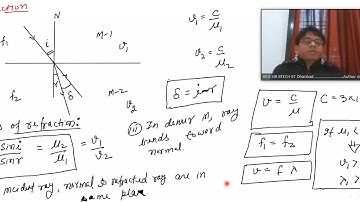 N
f₁
i
M-1
v₁
r
δ
f₂
M-2
v₂
v₁ = c/μ₁
v₂ = c/μ₂
δ = i-r
s of refraction:
sini/sinr = μ₂/μ₁ = v₁/v₂
(iii) In denser M, ray
bends toward
normal.
incident ray, normal & refracted ray are in
same plane
v = c/μ
C = 3×1
f₁ = f₂
v = f λ
If μ₁ <
BTECH IIT Dhanbad
Author